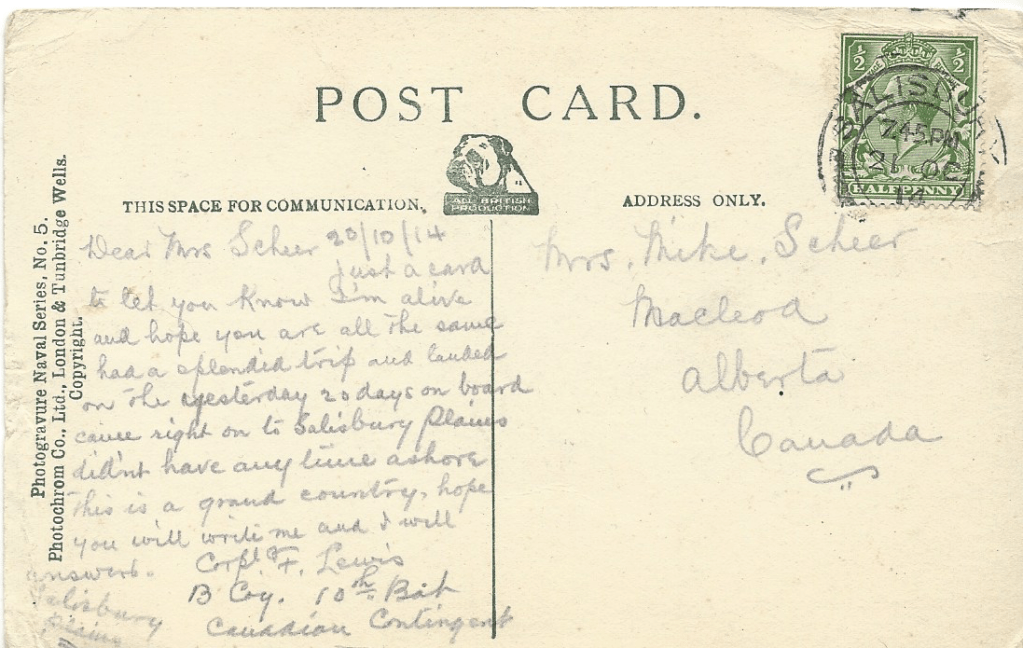 POST CARD.
ALL BRITISH
PRODUCTION
THIS SPACE FOR COMMUNICATION.
ADDRESS ONLY.
Photogravure Naval Series, No. 5.
Photochrom Co., Ltd., London & Tunbridge Wells.
Copyright.
1/2 1/2
HALFPENNY
SALISBURY
7.45 PM
21 OC
14
Dear Mrs Scheer 20/10/14
Just a card
to let you know I'm alive
and hope you are all the same
had a splendid trip and landed
on the yesterday 20 days on board
came right on to Salisbury Plains
did'nt have any time ashore
this is a grand country, hope
you will write me and I will
answer.
Corpl F. Lewis
B Coy. 10th Bat
Canadian Contingent
Salisbury
Plains
Mrs. Mike. Scheer
Macleod
Alberta
Canada